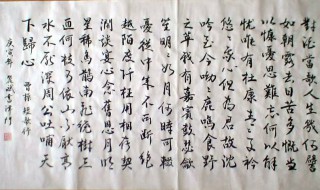 對酒當歌人生幾何譬
如朝露去日苦多慨當
以慷憂思難忘何以解
憂唯有杜康青青子衿
悠悠我心但為君故沈
吟至今呦呦鹿鳴食野
之苹我有嘉賓鼓瑟吹
笙明明如月何時可輟
憂從中來不可斷絕
越陌度阡枉用相存契
闊談宴心念舊恩月明
星稀烏鵲南飛繞樹三
匝何枝可依山不厭高
水不厭深周公吐哺天
下歸心 曹操短歌行